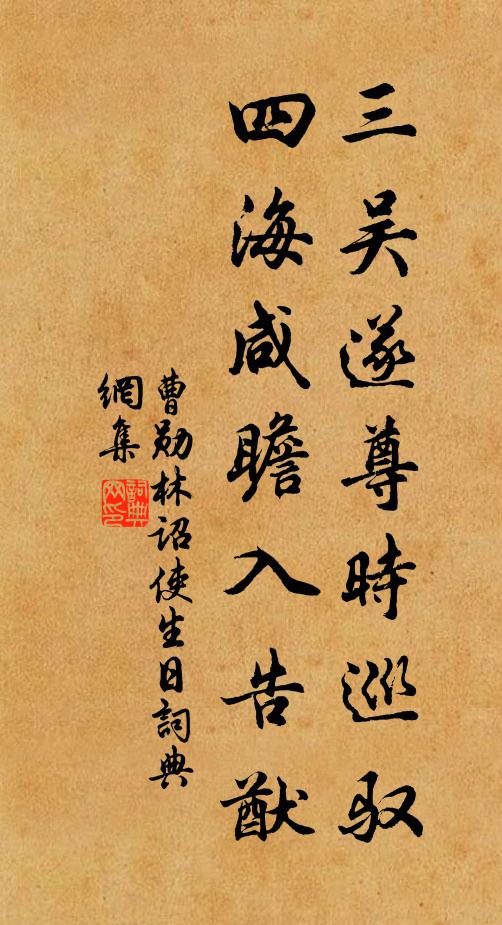 三吴遂尊時巡驭
四海咸瞻入告猷
曹勋林诏使生日詞典
網集
詞典
网印